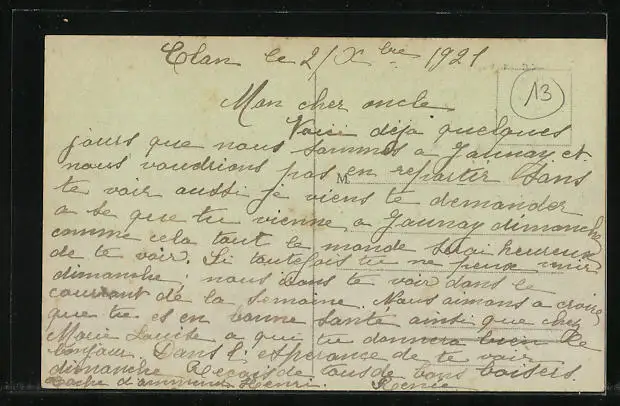 Clan le 2/Xbre 1921
13
Mon cher oncle
Voici déja quelques
jours que nous sommes a Jaunay et
nous voudrions pas en repartir sans
M
te voir aussi je viens te demander
a se que tu vienne a Jaunay dimanche
comme cela tout le monde serai heureux
de te voir. Si toutefois tu ne peux venir
dimanche nous irons te voir dans le
courrant de la semaine. Nous aimons a croire
que tu es en bonne santé ainsi que chez
Marie Louise a que tu donnera bien le
bonjour. Dans l'espérance de te voir
dimanche Reçois de tous de bons baisers.
Henri. Renée